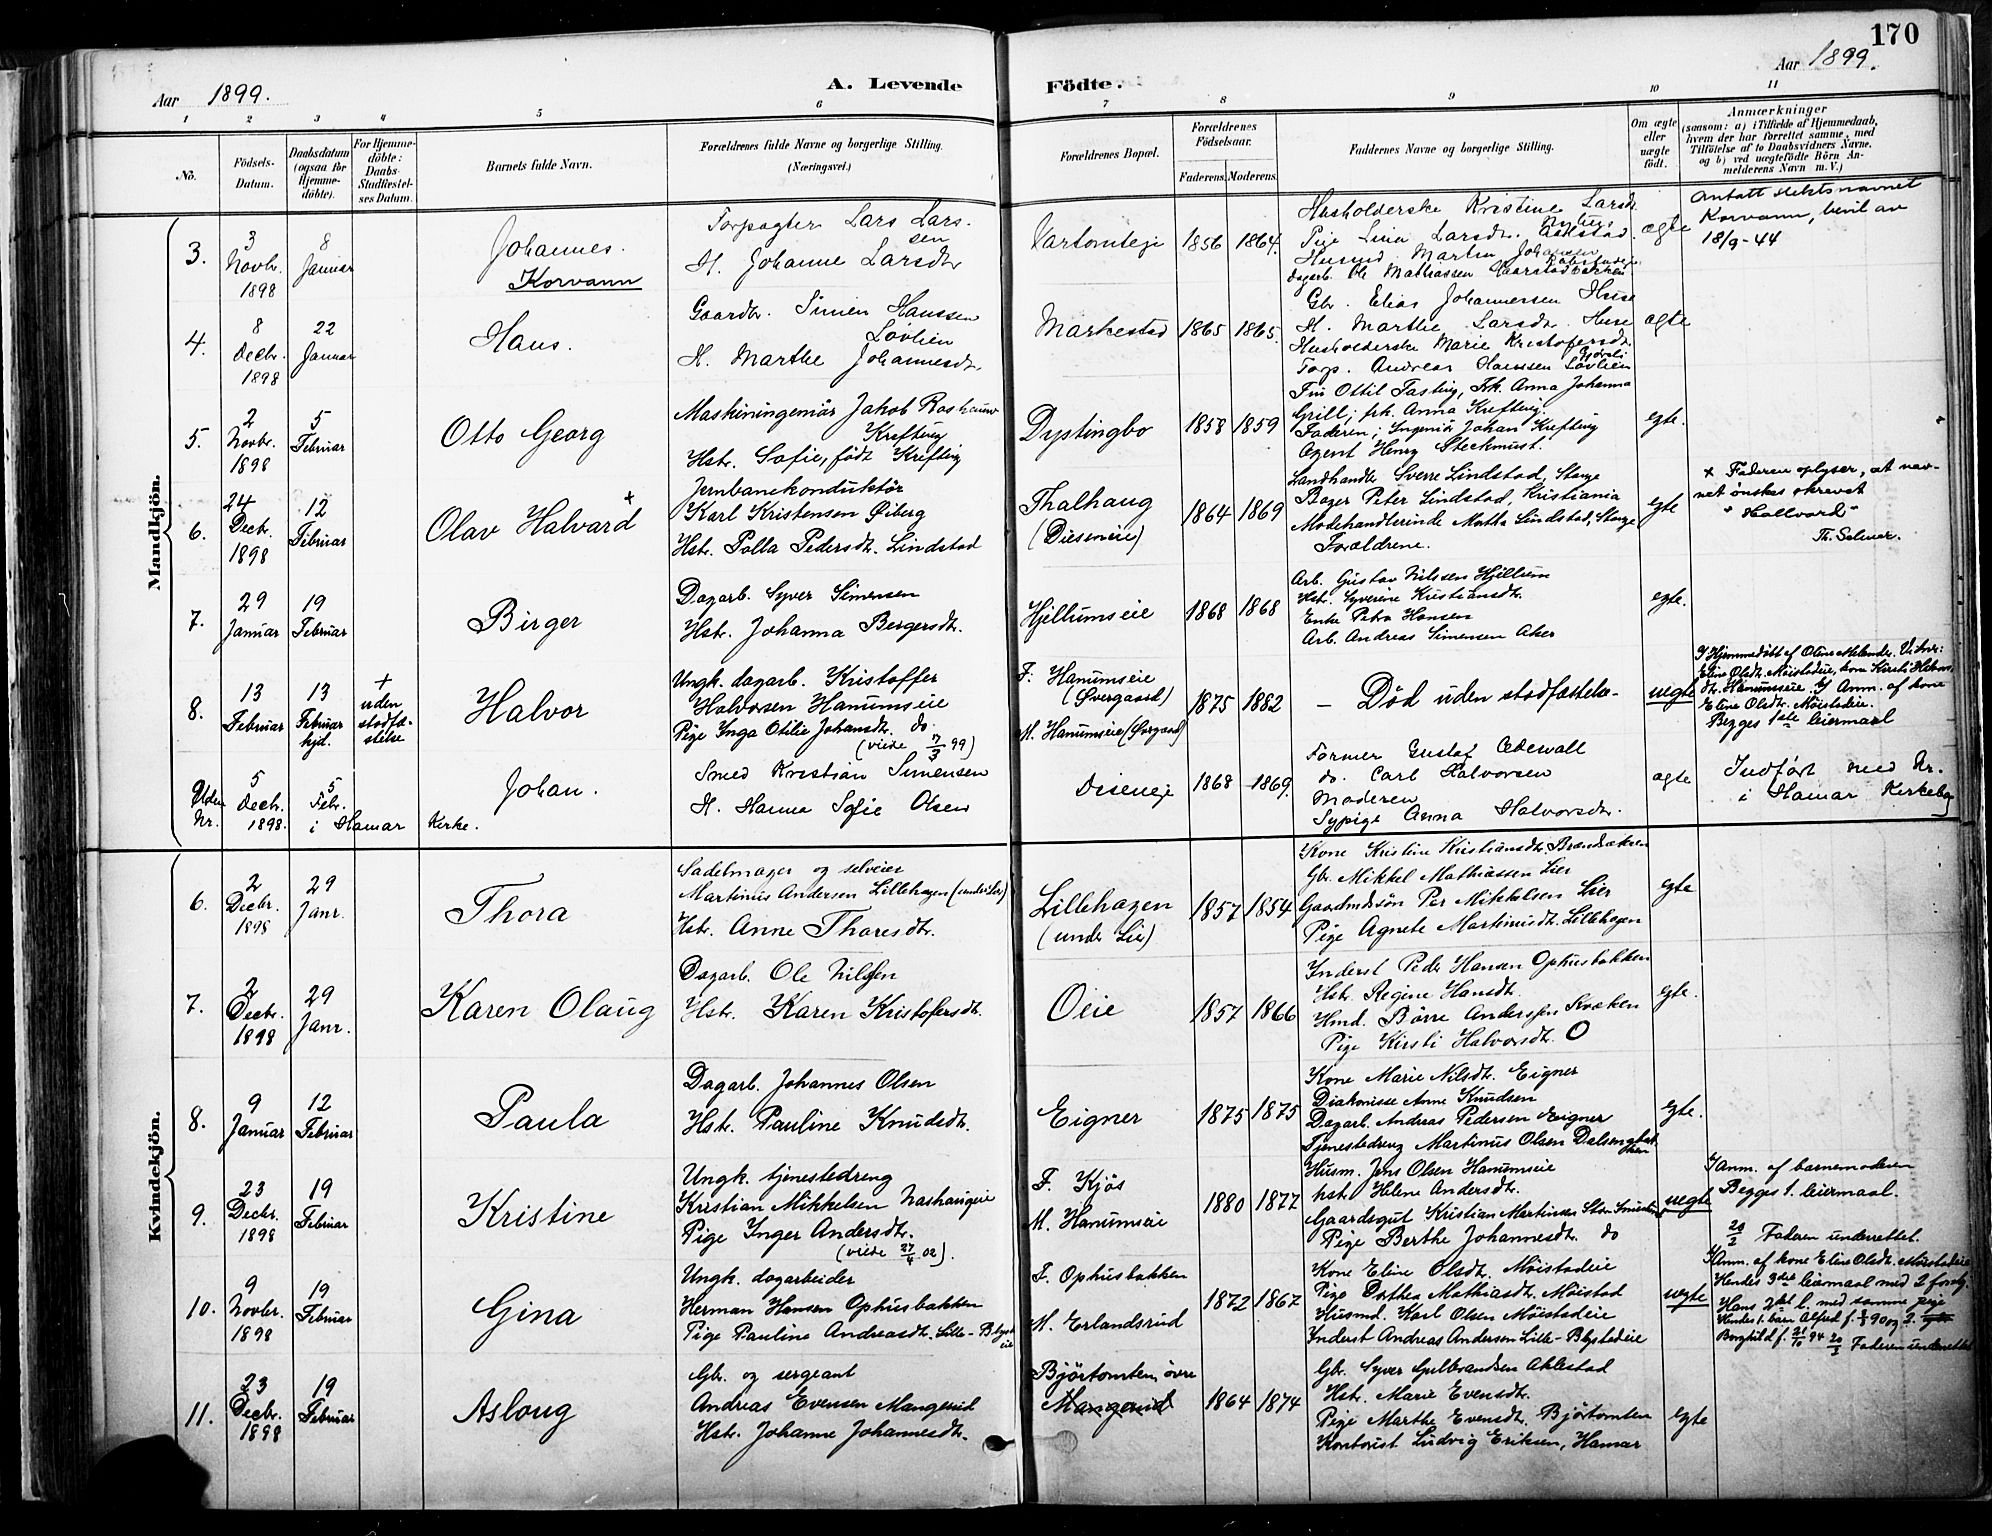 170
Aar 1899.
A. Levende Födte.
Aar 1899.
1 2 3 4 5 6 7 8 9 10 11
No.
Födsels-
Datum.
Daabsdatum
(ogsaa for
Hjemme-
döbte).
For Hjemme-
döbte:
Daabs-
Stadfæstel-
ses Datum.
Barnets fulde Navn.
Forældrenes fulde Navne og borgerlige Stilling.
(Næringsvei.)
Forældrenes Bopæl.
Forældrenes
Födselsaar.
Faderens. Moderens.
Faddernes Navne og borgerlige Stilling.
Om ægte
eller
uægte
födt.
Anmærkninger
(saasom: a) i Tilfælde af Hjemmedaab,
hvem der har forrettet samme, med
Tilföielse af to Daabsvidners Navne,
og b) ved uægtefödte Börn An-
melderens Navn m. V.)
Mandkjön.
3.
3
Novbr.
1898
8
Januar
Johannes.
Korvann
Forpagter Lars Lars-
sen
H. Johanne Larsdtr
Vartomteje
1856 1864.
Husholderske Kristine Larsdr
Pige Lina Larsdr.
Husmd Martin Johansen
Dagarb. Ole Mathiassen
ægte
Antatt slektsnavnet
Korvann, bevil av
18/9-44
4.
8
Decbr.
1898
22
Januar
Hans.
Gaardbr. Simen Hanssen
Lövlien
H. Marthe Johannesdr.
Markestad
1865 1865.
Gbr. Elias Johannessen Huse
H. Marthe Larsdr. Huse
Husholderske Marie Kristofersdr
Forp. Andreas Hanssen Lövlien
ægte
5.
2
Novbr.
1898
5
Februar
Otto Georg
Maskiningeniör Jakob Roshauw
Krefting
Hstr. Sofie, födt Krefting
Dystingbo
1858 1859
Fru Ottil Fasting, Frk. Anna Johanna
Grill; frk. Anna Krefting.
Faderen; Ingeniör Johan Krefting
Agent Henry Steckmest.
egte.
6.
24
Decbr.
1898
12
Februar
Olav Halvard +
Jernbanekonduktör
Karl Kristensen Öiberg
Hstr. Polla Pedersdtr. Lindstad
Thalhaug
(Diseneie)
1864 1869
Landhandler Sverre Lindstad, Stange
Bager Peter Lindstad, Kristiania
Modehandlerinde Martha Lindstad, Stange
Forældrene.
egte
+ Faderen oplyser, at nav-
net önskes skrevet
"Hallvard"
Th. Selmer.
7.
29
Januar
19
Februar
Birger
Dagarb. Syver Simensen
Hstr. Johanna Bergersdtr.
Hjellumseie
1868 1868
Arb. Gustav Nilssen Hjellum
Hstr. Syverine Kristiansdtr.
Enke Petra Hansen
Arb. Andreas Simensen Aker
egte.
8.
13
Februar
13
Februar
hjd.
+
uden
stadfæ-
stelse
Halvor
Ungk. dagarb. Kristoffer
Halvorsen Hanumseie
Pige Inga Otilie Johansdtr. do.
(viede 7/3 99)
F. Hanumseie
(Övergaard)
M. Hanumseie (Övergaard)
1875 1882
– Död uden stadfæstelse –
uegte
Hjemmedöbt af Oline Melander. Vidner:
Eline Olsdtr. Möistadeie, kone Kirsti Halvors-
dtr. Hanumseie. Anm. af kone
Eline Olsdtr. Möistadeie.
Begges 1ste leiermaal
Uden
Nr.
5
Decbr.
1898.
5
Febr.
i Hamar Kirke.
Johan.
Smed Kristian Simensen
H. Hanna Sofie Olsen
Diseneje
1868 1869.
Former Gustaf Cedewall
do. Carl Halvorsen
Moderen
Sypige Anna Halvorsdr.
ægte
Indfört med Nr.
i Hamar Kirkebog
Kvindekjön.
6.
2
Decbr.
1898
29
Janr.
Thora
Sadelmager og selveier
Martinus Andersen Lillehagen (under Lier)
Hstr. Anne Thoresdtr.
Lillehagen
(under Lier)
1857 1854
Kone Kristine Kristiansdtr. Brændækren
Gbr. Mikkel Mathiassen Lier
Gaardmdsön Per Mikkelsen Lier
Pige Agnete Martinusdtr. Lillehagen
egte
7.
2
Decbr.
1898
29
Janr.
Karen Olaug
Dagarb. Ole Nilssen
Hstr. Karen Kristofersdtr.
Oeie
1857 1866
Inderst Peder Hansen Ophusbakken
Hstr. Regine Hansdtr.
Hmd. Börre Anderssen Kvæken
Pige Kirsti Halvorsdtr. O
egte.
8.
9
Januar
12
Februar
Paula
Dagarb. Johannes Olsen
Hstr. Pauline Knudsdtr.
Eigner
1875 1875
Kone Marie Nilsdtr. Eigner
Diakonisse Anne Knudsen
Dagarb. Andreas Pedersen Eigner
Tjenestedreng Martinus Olsen
egte.
9.
23
Decbr.
1898
19
Februar
Kristine
Ungk. tjenestedreng
Kristian Mikkelsen Nashaugeie
Pige Inger Andersdtr.
(viede 27/4 02).
F. Kjös
M. Hanumseie
1880 1877
Husm. Jens Olsen Hanumseie
hstr. Helene Andersdtr.
Gaardsgut Kristian Martinsen
Pige Berthe Johannesdtr. do
uegte
Anm. af barnemoderen
Begges 1. leiermaal.
20/2 Faderen underrettet.
10.
9
Novbr.
1898
19
Februar
Gina
Ungk. dagarbeider
Herman Hansen Ophusbakken
Pige Pauline Andreasdtr. Lille-Blystadeie
F. Ophusbakken
M. Erlandsrud
1872 1867
Kone Eline Olsdtr. Möistadeie
Pige Dorthea Mathiasdtr. Möistad
Husmd. Karl Olsen Möistadeie
Inderst Andreas Andersen Lille-Blystadeie
uegte
Anm. af kone Eline Olsdtr. Möistadeie
Hendes 3die leiermaal med 2 forskj.
Hans 2det l. med samme pige
Hendes 1. barn Alfred f. 90 og 2.
Borghild f. 21/10 94 20/2 Faderen underrettet
11.
23
Decbr.
1898
19
Februar
Aslaug
Gbr. og sergeant
Andreas Evensen Mangerud
Hstr. Johanne Johannesdtr.
Björtomten, övre
Mangerud
1864 1874
Gbr. Syver Gulbrandsen Ahlestad
Hstr. Marie Evensdtr.
Pige Marthe Evensdtr. Björtomten
Kontorist Ludvig Eriksen, Hamar
egte